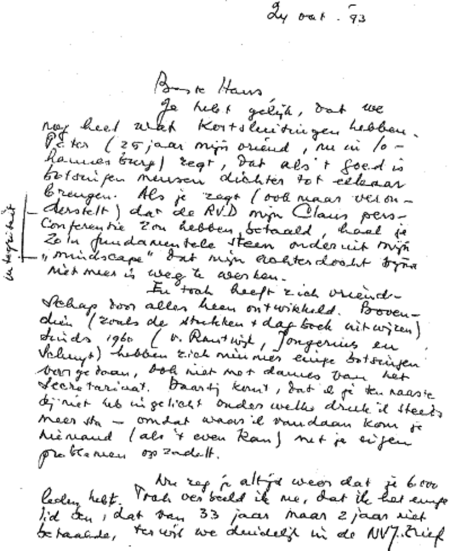 24 oct. '93
Beste Hans
Je hebt gelijk, dat we
nog heel wat kortsluitingen hebben.
Peter (25 jaar mijn vriend, nu in Jo-
hannesburg) zegt, dat als 't goed is
botsingen mensen dichter tot elkaar
brengen. Als je zegt (ook maar veron-
derstelt) dat de RVD mijn Claus pers-
conferentie zou hebben betaald, haal je
zo'n fundamentele steen onderuit mijn
"mindscape" dat mijn achterdocht bijna
niet meer is weg te werken.
integriteit
En toch heeft zich vriend-
schap door alles heen ontwikkeld. Boven-
dien (zoals de stukken + dagboek uitwijzen)
sinds 1960 (v. Rantwijk, Jongerius en
Schuyt) hebben zich nimmer enige botsingen
voorgedaan, ook niet met dames van het
secretariaat. Daarbij komt, dat ik je ten naaste
bij niet heb ingelicht onder welke druk ik steeds
meer sta – omdat waar ik vandaan kom je
niemand (als 't even kan) met je eigen
problemen opzadelt.
Nu zeg je altijd weer dat je 6000
leden hebt. Toch verbeeld ik me, dat ik het enige
lid ben, dat van 33 jaar maar 2 jaar niet
betaalde, terwijl we duidelijk in de NVJ-brief